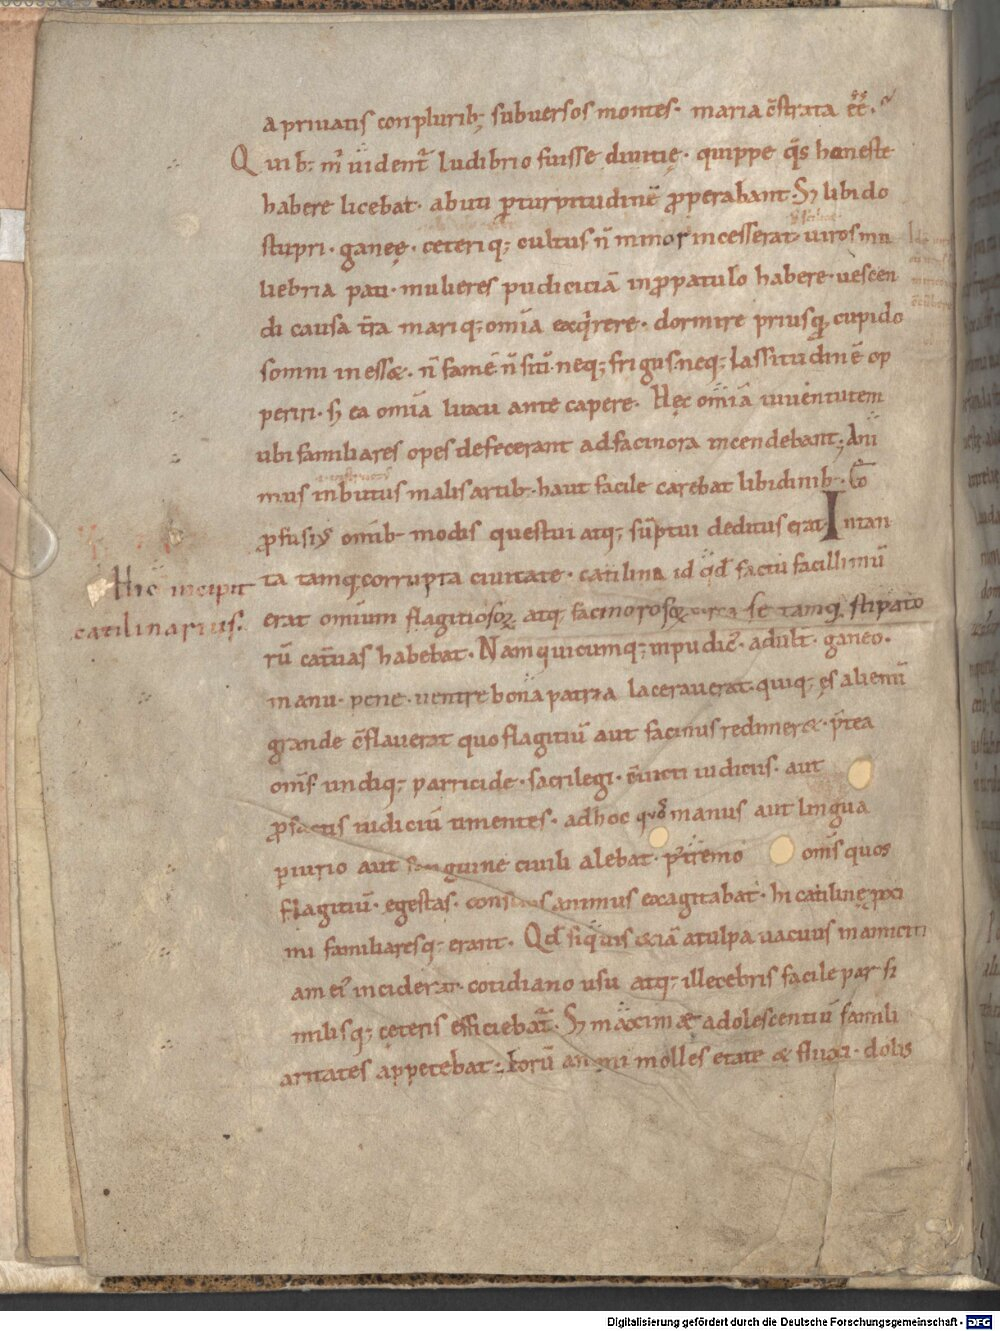 a priuatis conplurib; subuersos montes. maria c̄strata ēē.
Quib; m̄ uident̄ ludibrio fuisse diuitię. quippe q̄s honeste
habere licebat. abuti p̱turpitudinē ꝓperabant. Sꝫ libido
stupri. ganeę. ceteriq; cultus n̄ minor incesserat uiros mu
liebria pati. mulieres pudiciciā inꝓpatulo habere. uescen
di causa t̄ra mariq; om̄ia exq̇rere. dormire priusq̱ cupido
somni iness&. n̄ famē n̄ sitī neq; frigus neq; lassitudinē op
periri. sꝫ ea om̄ia luxu ante capere. Hęc om̄ia iuuentutem
ubi familiares opes defecerant adfacinora incendebant; Ani
mus inbutus malis artib. haut facile carebat libidinib. Eō
ꝓfusiꝰ omīb modis questui atq; sūptui deditus erat. Intan
ta tamq̱ corrupta ciuitate. catilina id qđ factū facillimū
erat omīum flagitiosoꝝ atq; facinorosoꝝ circa se tamq̱ stipato
rū cat̄uas habebat. Nam quicumq; inpudic̄. adult̄. ganeo.
manu. pene. uentre bona patria lacerauerat. quiq; ęs alienū
grande c̄flauerat quo flagitiū aut facinus redimer&. p̄tea
om̄s undiq; parricide. sacrilegi. c̄uicti iudiciis. aut
ꝓfactis iudiciū timentes. adhoc quos manus aut lingua
ꝑiurio aut sanguine ciuili alebat. p̄tremo om̄s quos
flagitiū. egestas. conscius animus exagitabat. hi catilinę ꝓxi
mi familiaresq; erant. Qđ siquis &iā a culpa uacuus in amiciti
am ei inciderat. cotidiano usu atq; illecebris facile par si
milisq; ceteris efficiebat̄. Sꝫ maxime adolescentiū famili
aritates appetebat. Eorū animi molles etate & fluxi. dolis
Hic incipit
catilinarius.
Digitalisierung gefördert durch die Deutsche Forschungsgemeinschaft - DFG